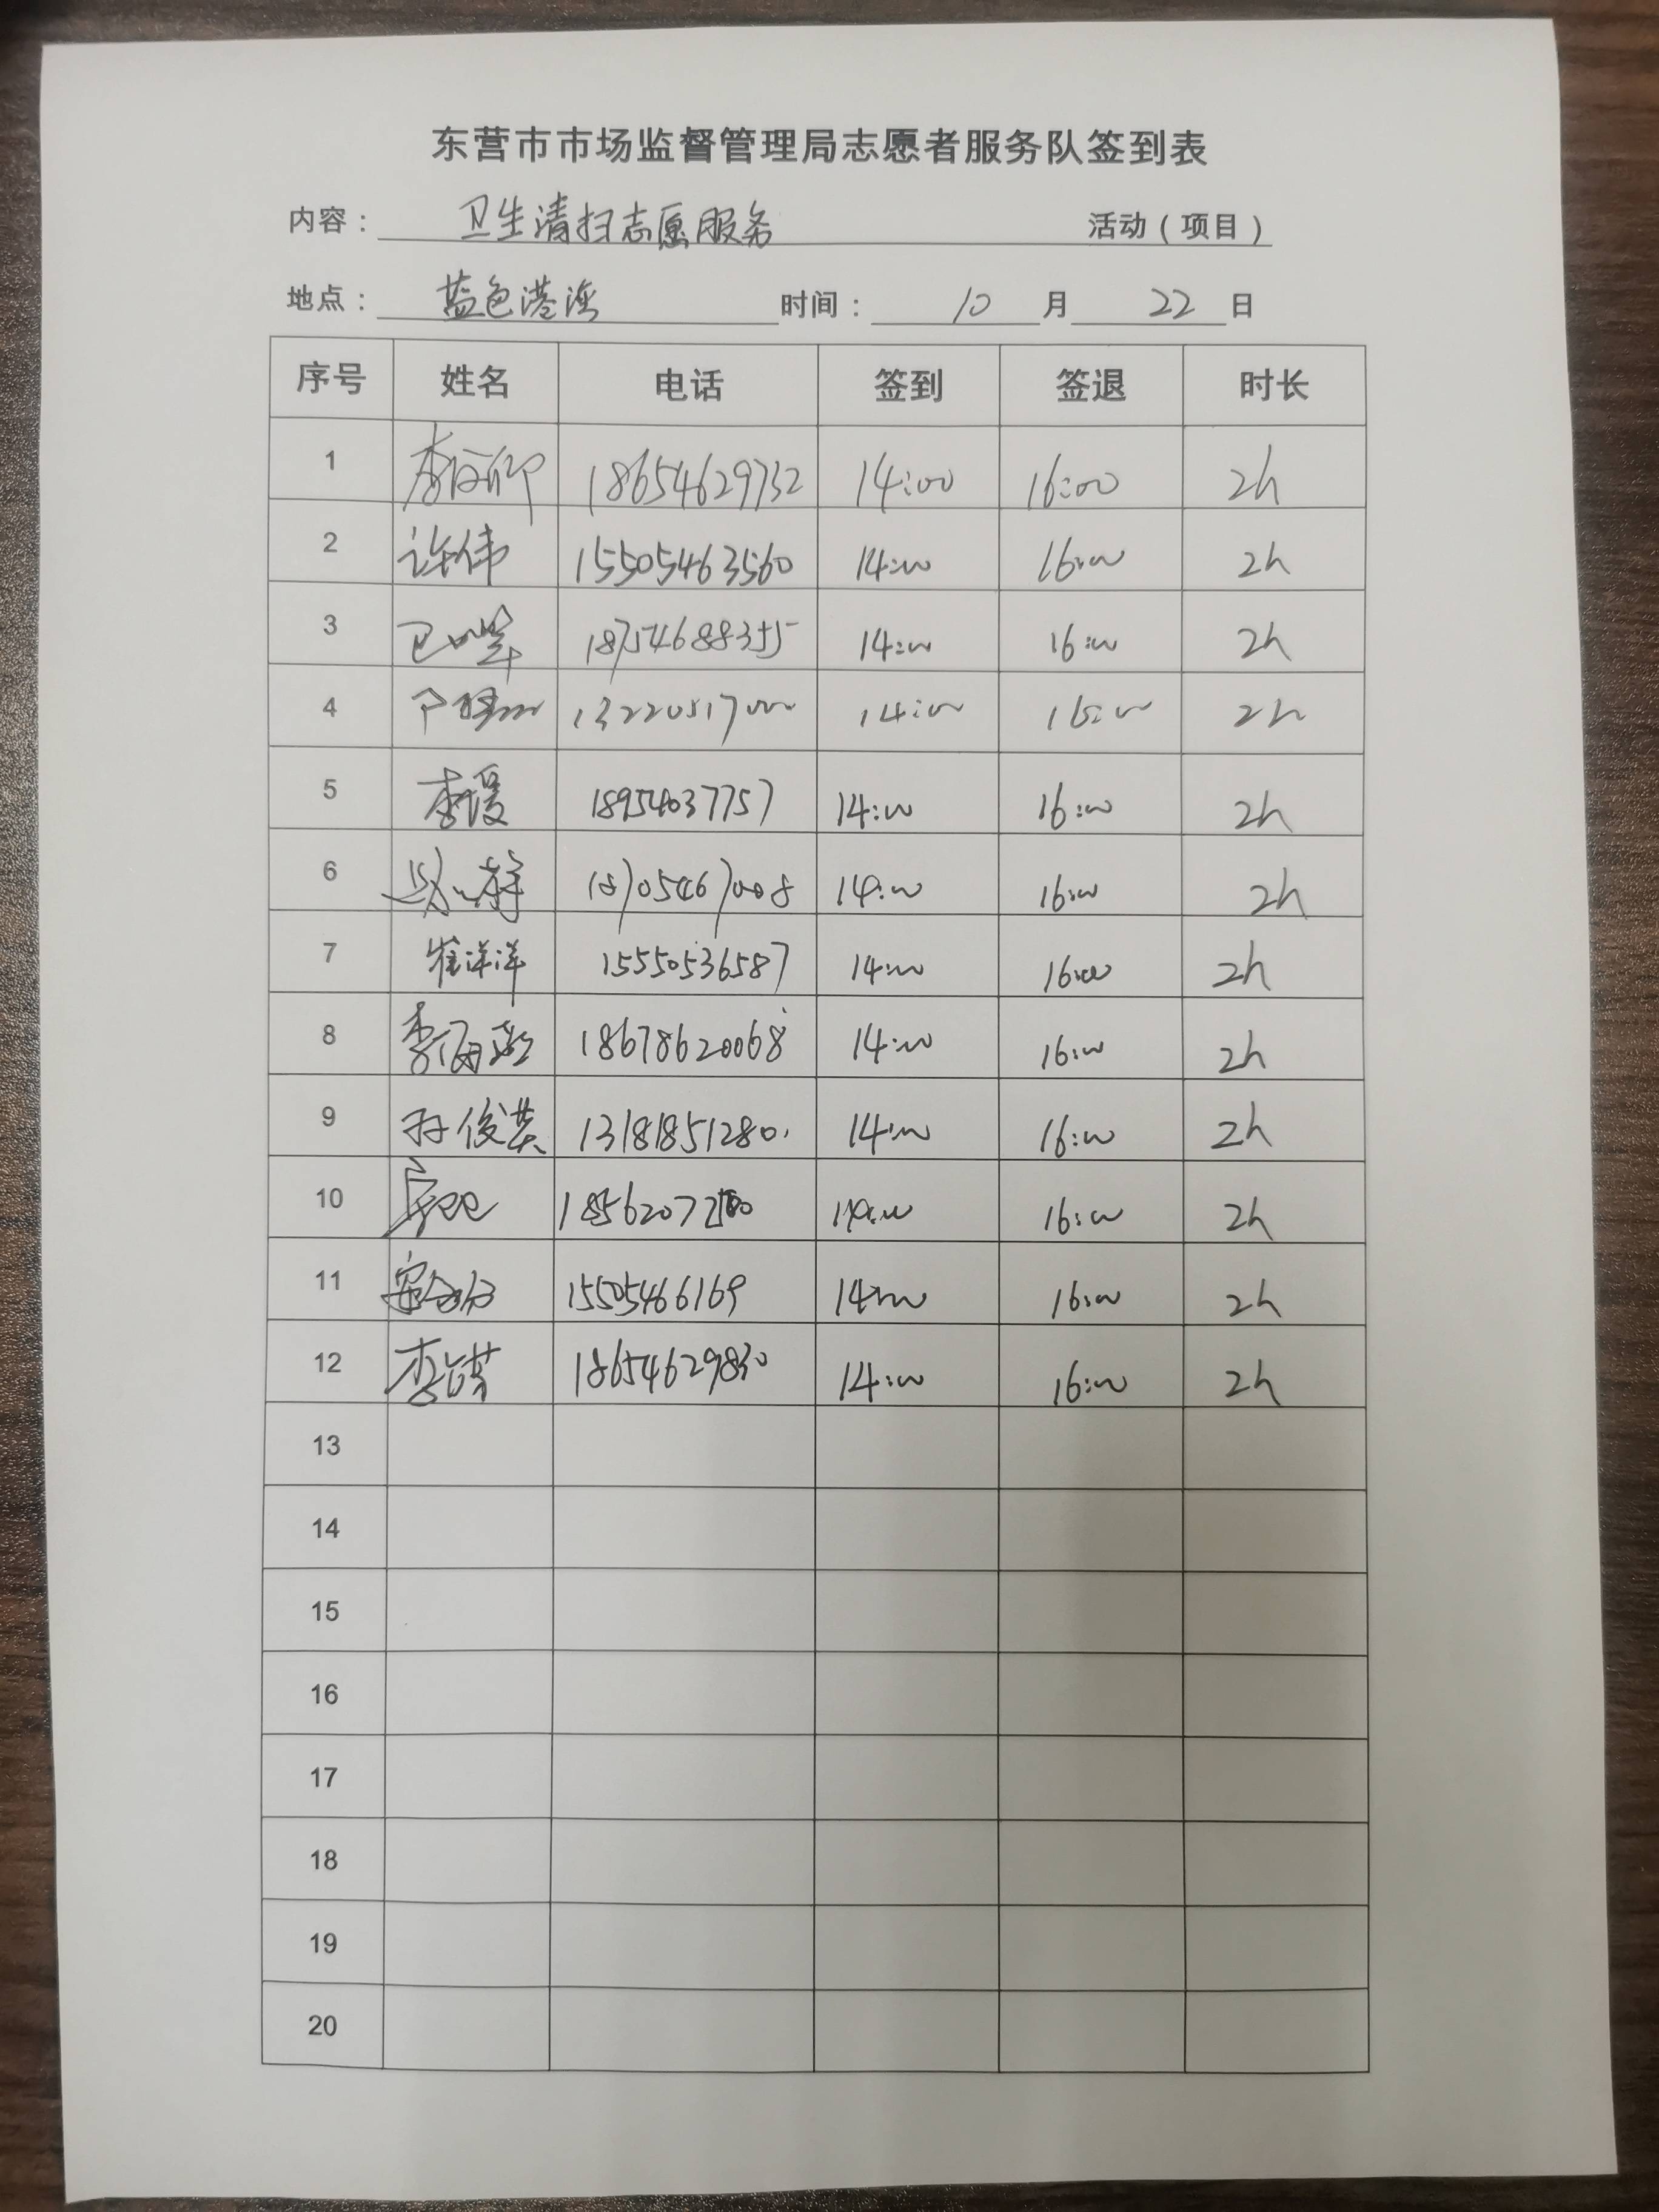 东营市市场监督管理局志愿者服务队签到表
内容： 卫生清扫志愿服务 活动（项目）
地点： 蓝色港湾 时间： 10 月 22 日
序号 姓名 电话 签到 签退 时长
1 18654629732 14:00 16:00 2h
2 许伟 15505463560 14:00 16:00 2h
3 18754688355 14:00 16:00 2h
4 14:00 16:00 2h
5 李瑗 18954037757 14:00 16:00 2h
6 18705467008 14:00 16:00 2h
7 崔洋洋 15550536587 14:00 16:00 2h
8 18678620068 14:00 16:00 2h
9 孙俊英 13181851280 14:00 16:00 2h
10 14:00 16:00 2h
11 15505466169 14:00 16:00 2h
12 18654629830 14:00 16:00 2h
13
14
15
16
17
18
19
20